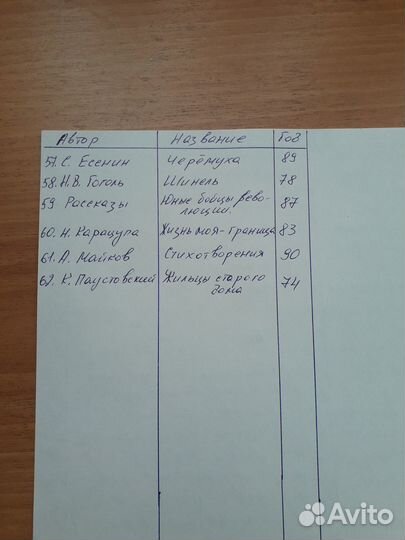 Автор Название Год
57. С. Есенин Черёмуха 89
58. Н.В. Гоголь Шинель 78
59. Рассказы Юные бойцы рево- 87
люции.
60. Н. Карацупа Жизнь моя - граница 83
61. А. Майков Стихотворения 90
62. К. Паустовский Жильцы старого 74
дома
Avito